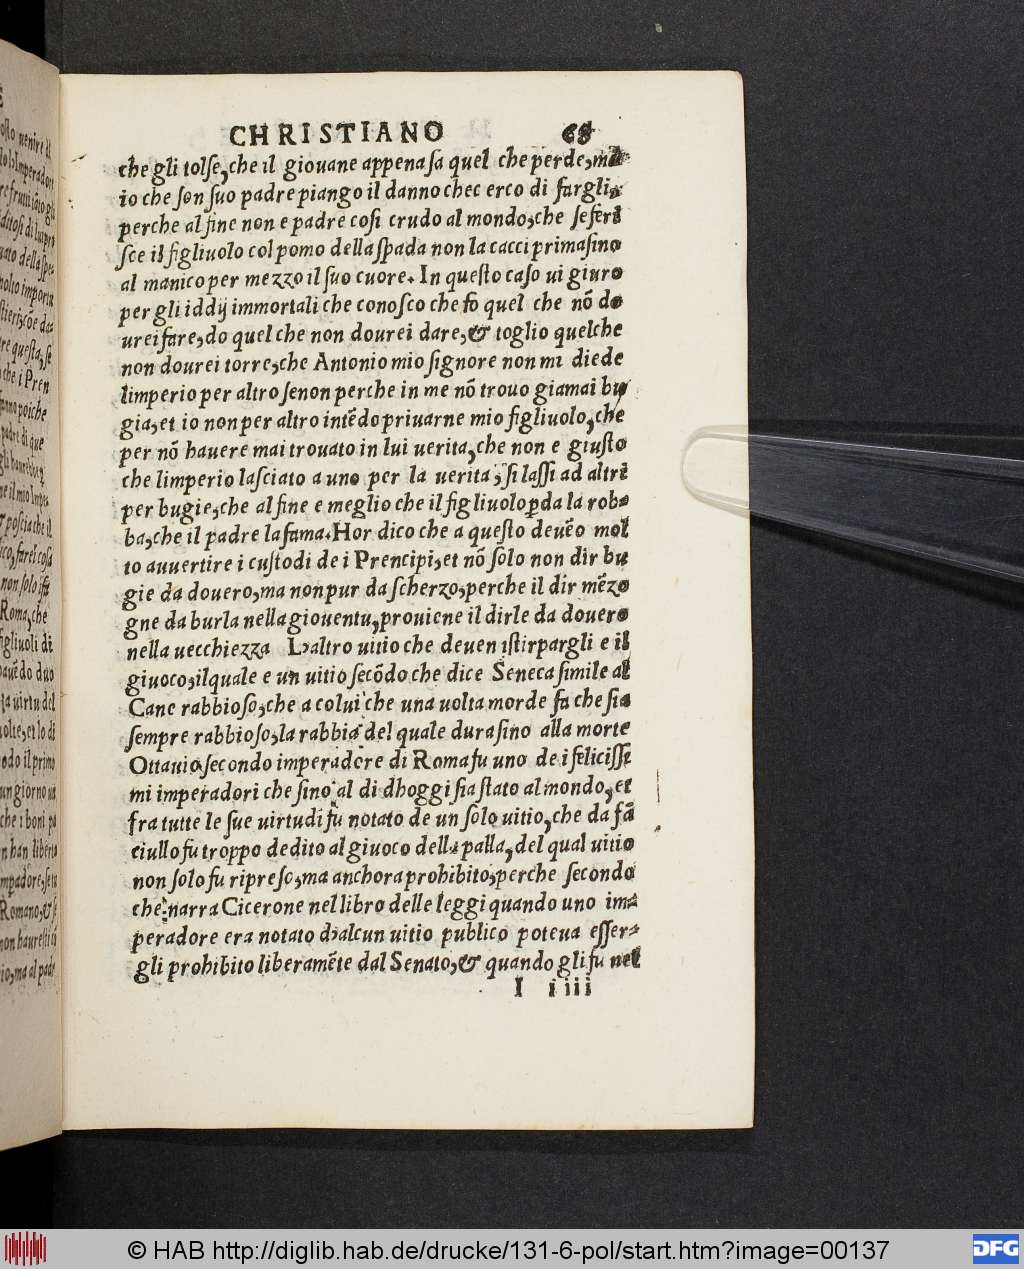 CHRISTIANO 68
che gli tolse, che il giovane appena sa quel che perde, ma
io che son suo padre piango il danno chec erco di fargli,
perche al fine non e padre cosi crudo al mondo, che se feri
sce il figliuolo col pomo della spada non la cacci prima sino
al manico per mezzo il suo cuore. In questo caso ui giuro
per gli iddij immortali che conosco che fo quel che nõ do
urei fare, do quel che non dourei dare, & toglio quelche
non dourei torre, che Antonio mio signore non mi diede
limperio per altro senon perche in me nõ trouo giamai bu
gia, et io non per altro intẽdo priuarne mio figliuolo, che
per nõ hauere mai trouato in lui uerita, che non e giusto
che limperio lasciato a uno per la uerita, si lassi ad altri
per bugie, che al fine e meglio che il figliuolo ꝑda la rob-
ba, che il padre la fama. Hor dico che a questo deuẽo mol
to auuertire i custodi de i Prencipi, et nõ solo non dir bu
gie da douero, ma non pur da scherzo, perche il dir mẽzo
gne da burla nella giouentu, prouiene il dirle da douero
nella uecchiezza L'altro uitio che deuen istirpargli e il
giuoco, ilquale e un uitio secõdo che dice Seneca simile al
Cane rabbioso, che a colui che una uolta morde fa che sia
sempre rabbioso, la rabbia del quale dura sino alla morte
Ottauio secondo imperadore di Roma fu uno de i felicissi
mi imperadori che sino al di dhoggi sia stato al mondo, et
fra tutte le sue uirtudi fu notato de un solo uitio, che da fã
ciullo fu troppo dedito al giuoco della palla, del qual uitio
non solo fu ripreso, ma anchora prohibito, perche secondo
che narra Cicerone nel libro delle leggi quando uno im-
peradore era notato d'alcun uitio publico poteua esser-
gli prohibito liberamẽte dal Senato, & quando gli fu nel
I iiii
© HAB http://diglib.hab.de/drucke/131-6-pol/start.htm?image=00137
DFG